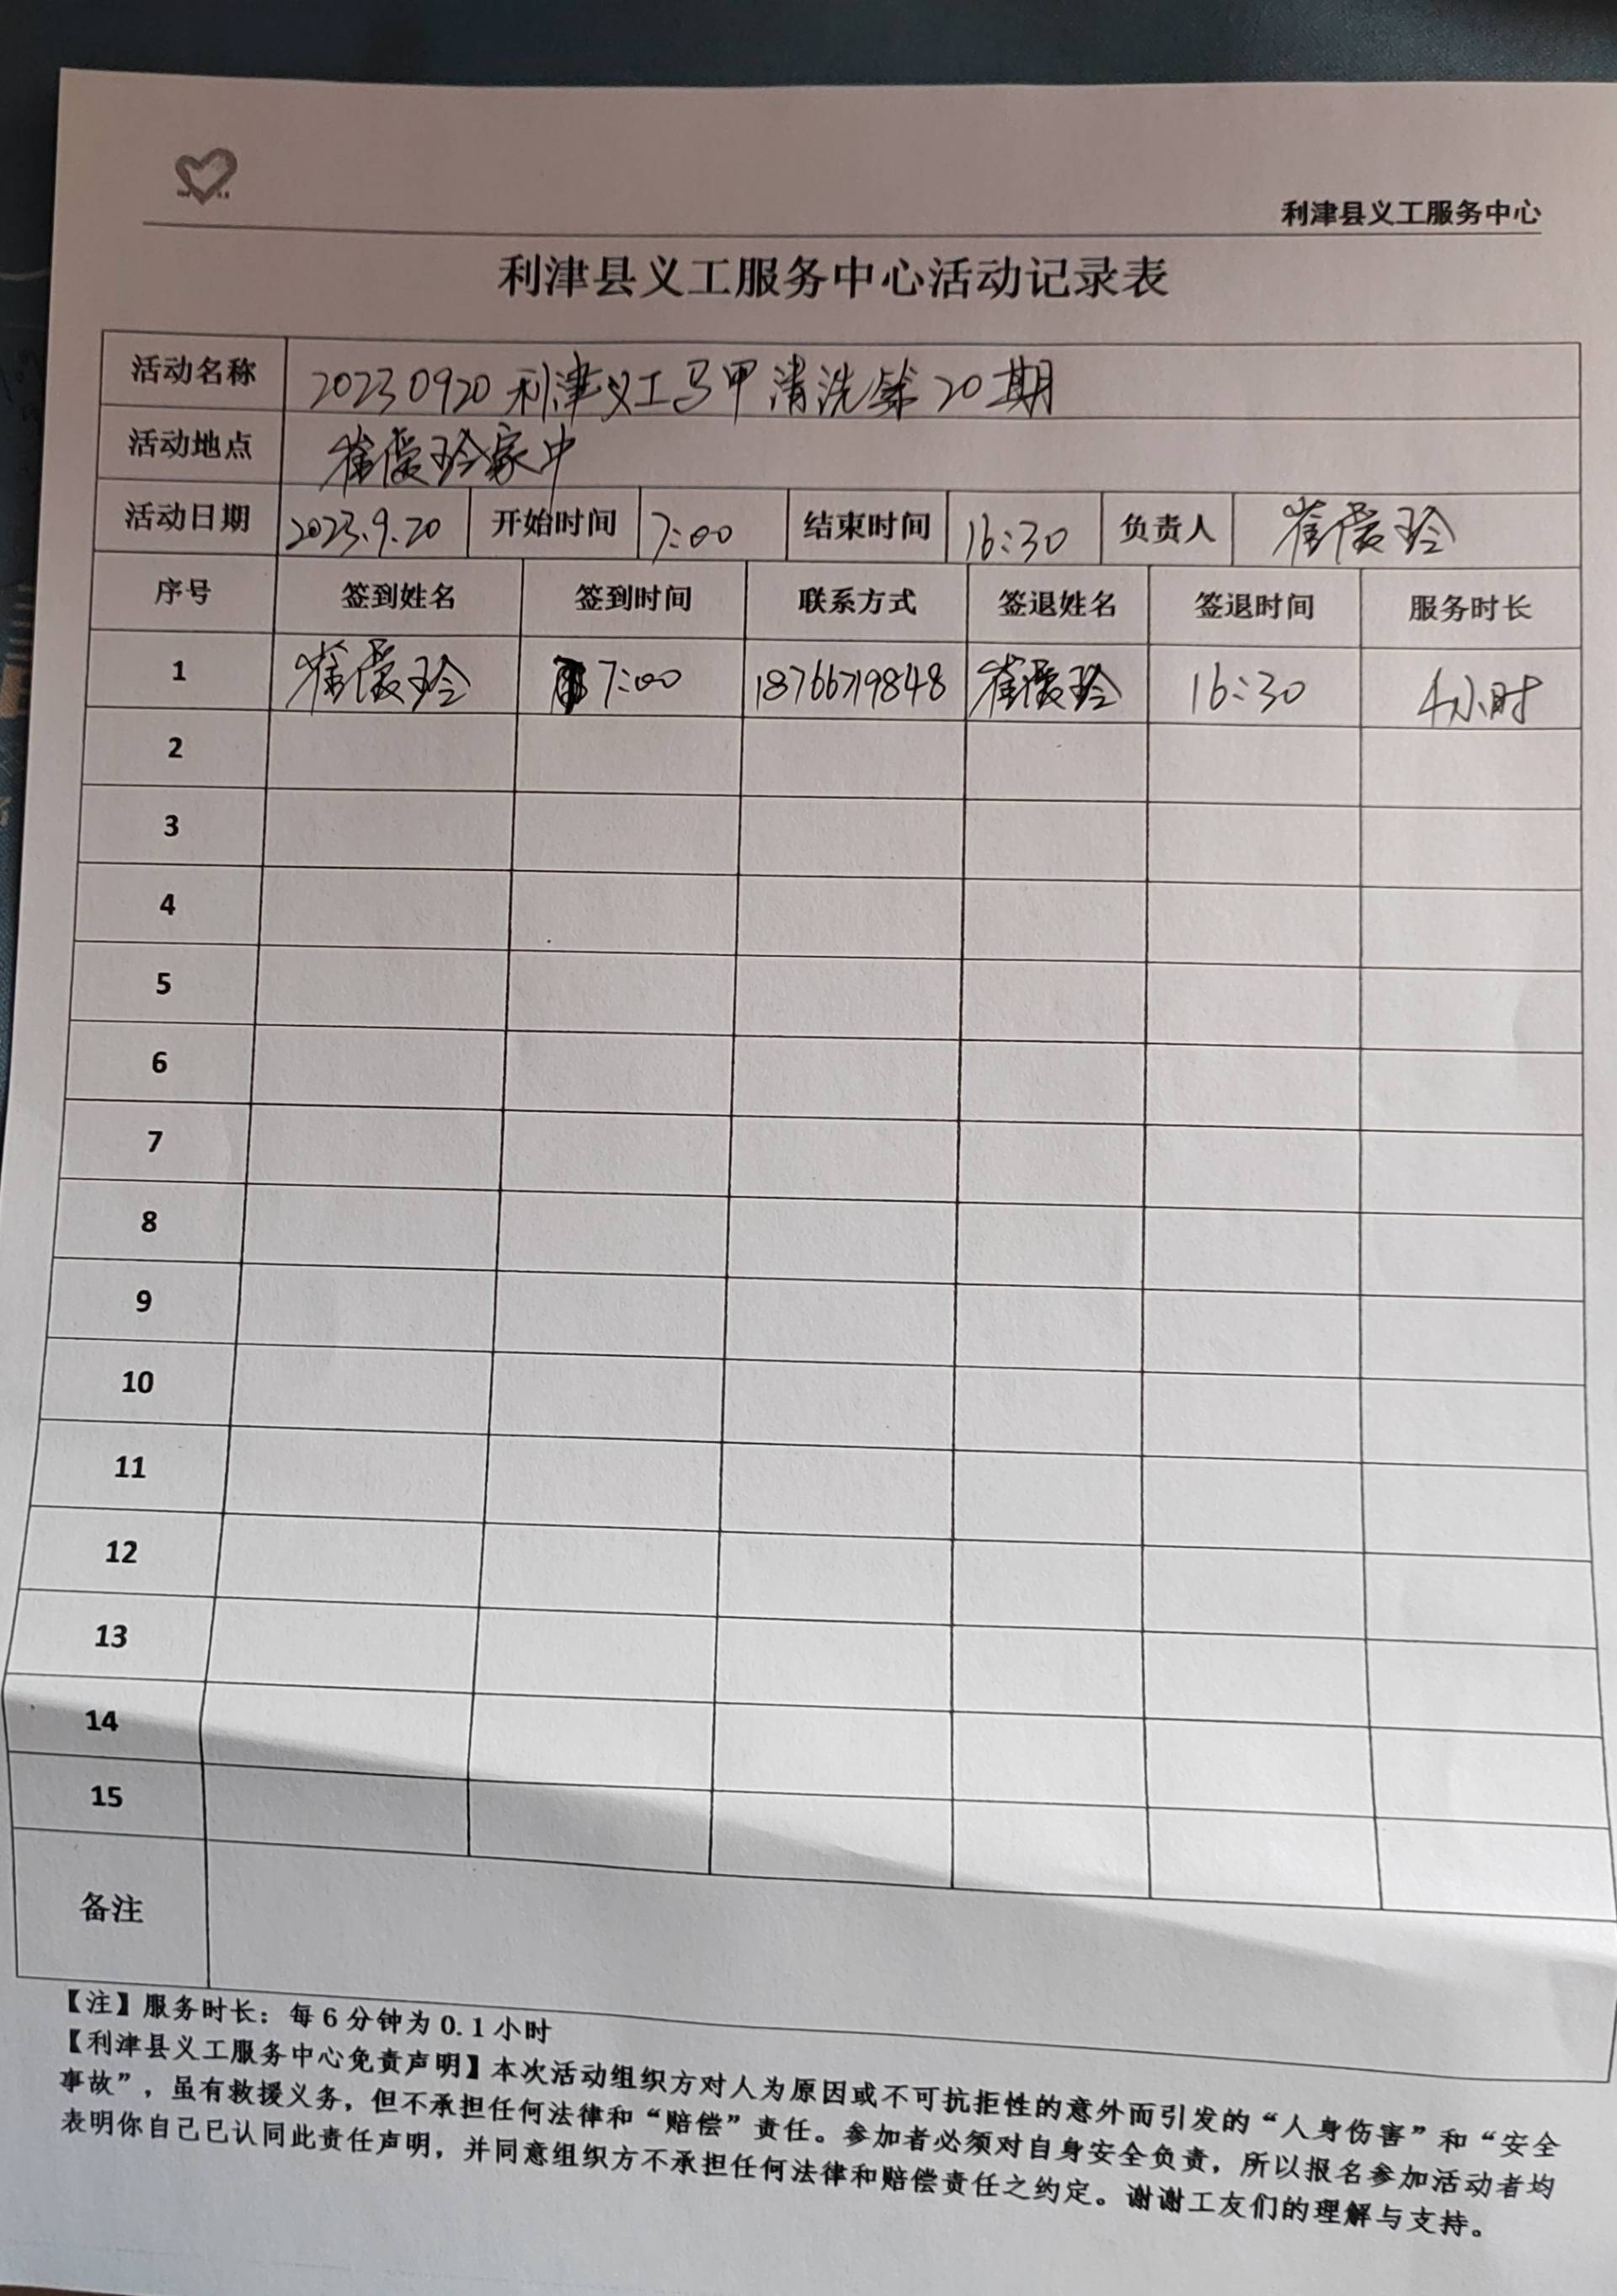 利津县义工服务中心
利津县义工服务中心活动记录表
活动名称 20230920利津义工马甲清洗第20期
活动地点 崔爱玲家中
活动日期 2023.9.20 开始时间 7:00 结束时间 16:30 负责人 崔爱玲
序号 签到姓名 签到时间 联系方式 签退姓名 签退时间 服务时长
1 崔爱玲 7:00 18766719848 崔爱玲 16:30 4小时
2
3
4
5
6
7
8
9
10
11
12
13
14
15
备注
【注】服务时长：每6分钟为0.1小时
【利津县义工服务中心免责声明】本次活动组织方对人为原因或不可抗拒性的意外而引发的“人身伤害”和“安全
事故”，虽有救援义务，但不承担任何法律和“赔偿”责任。参加者必须对自身安全负责，所以报名参加活动者均
表明你自己已认同此责任声明，并同意组织方不承担任何法律和赔偿责任之约定。谢谢工友们的理解与支持。